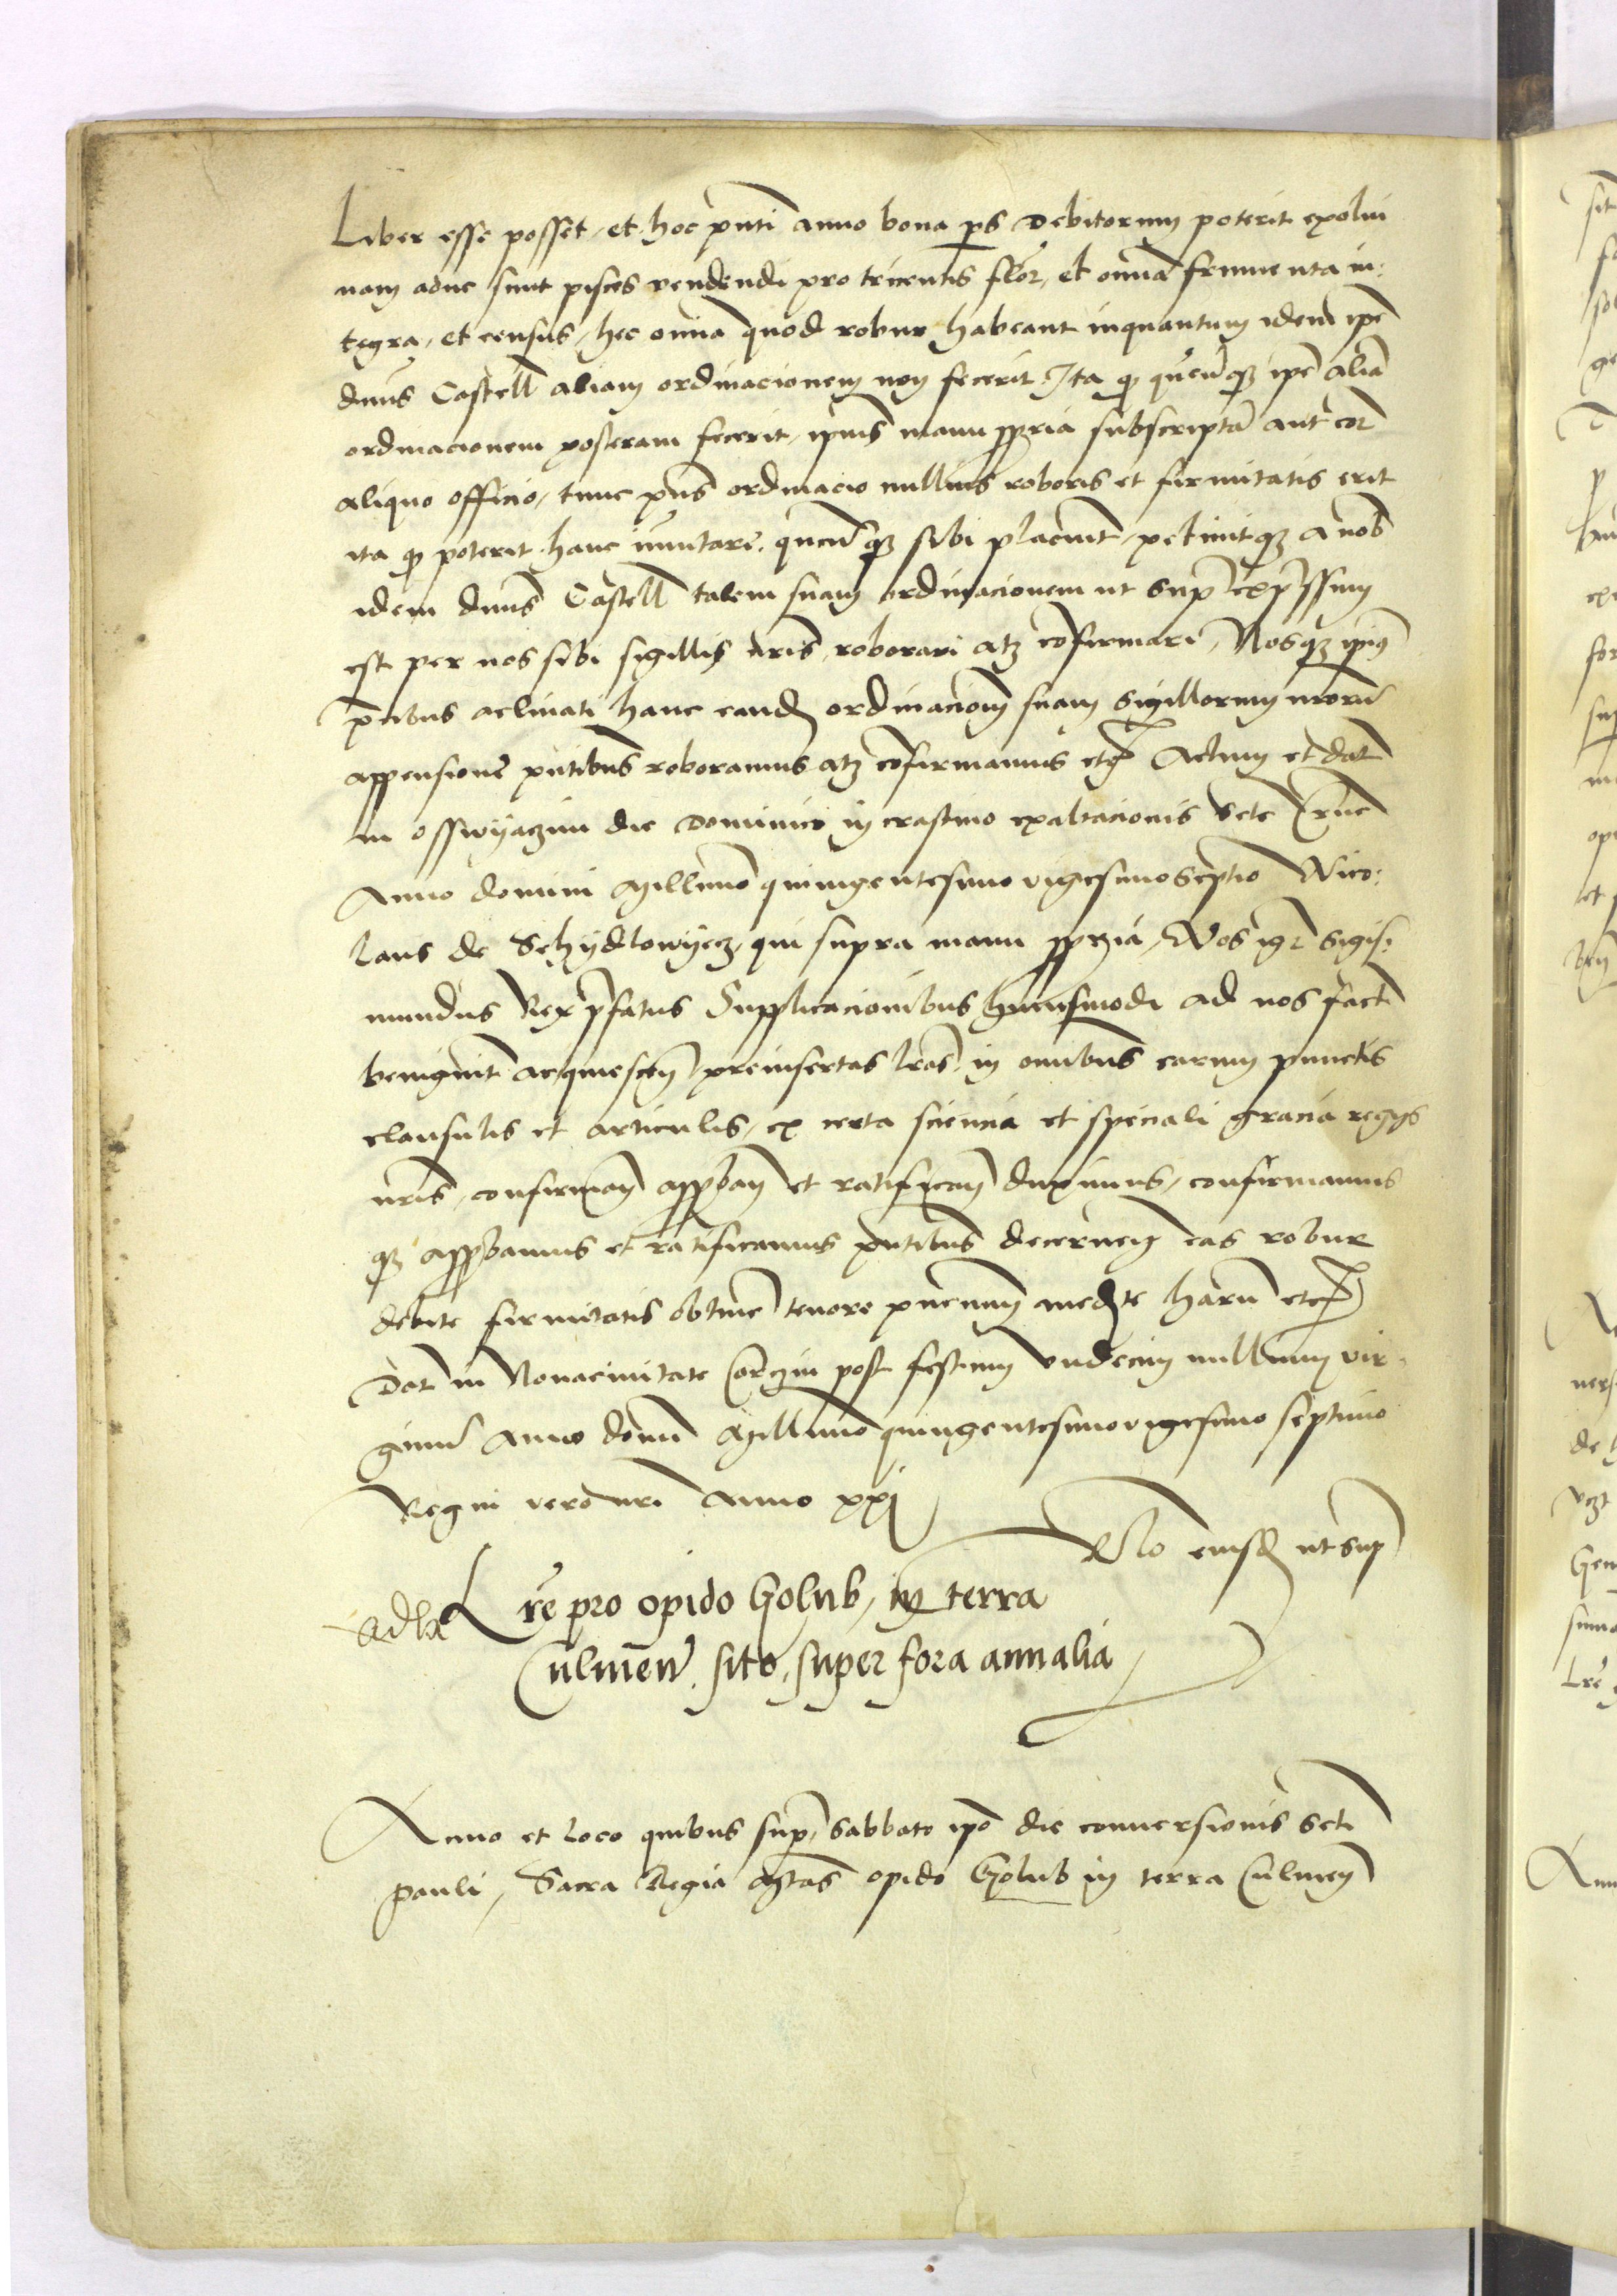 Liber esse posset, et hoc pnti anno bona ps debitorum poterit exolui
nam adhuc sunt pisces vendendi pro tricentis flor, et omnia frumenta in:
tegra, et census, hec omnia quod robur habeant inquantum idem ipe
dnus Castell aliam ordinacionem non fecerit. Ita q quicuq ipe alia
ordinacionem posteram fecerit, ipius manu ppria subscripta aut cor
aliquo officio, tunc pns ordinacio nullius roboris et firmitatis erit
ita q poterit hanc imutare, qncuq sibi placuit, petiuitq a nob
idem dnus Castell talem suam ordinacionem ut sup expssum
est per nos sibi sigillis nris roborari atq cofirmari, Nosq ipius
pcibus aclinati hanc eand ordinacionem suam sigillorum nroru
appensione pntibus roboramus atq cofirmamus etc Actum et dat
in Osswyaczim die Dominico in crastino exaltacionis scte Cruc
Anno domini Millimo quingentesimo vigesimo septio Nico:
laus de Schydlowyecz, qui supra manu ppria, Nos igr Sigis:
mundus Rex pfatus Supplicacionibus huiusmodi ad nos fact
benignit acquiescen preinsertas lras in omnibus earum punctis
clausulis et articulis, ex certa sciencia et speciali gracia regys
nris, confirman appban et ratifican duximus, confirmamus
q appbamus et ratificamus pntibus decernen eas robur
debite firmitatis obtinere tenore pncium mediate haru etc
Dat in Nouaciuitate Corczin post festum vndecim millium vir
ginu anno domi Millimo quingentesimo vigesimo septimo
Regni vero nri anno xxj
Rlo eiusd ut sup
Lre pro opido Golub, in terra
Culmen. sito, super fora annalia
Anno et loco quibus sup, sabbato ipo die conuersionis scti
Pauli, Sacra Regia Mtas opido Golub in terra Culmen